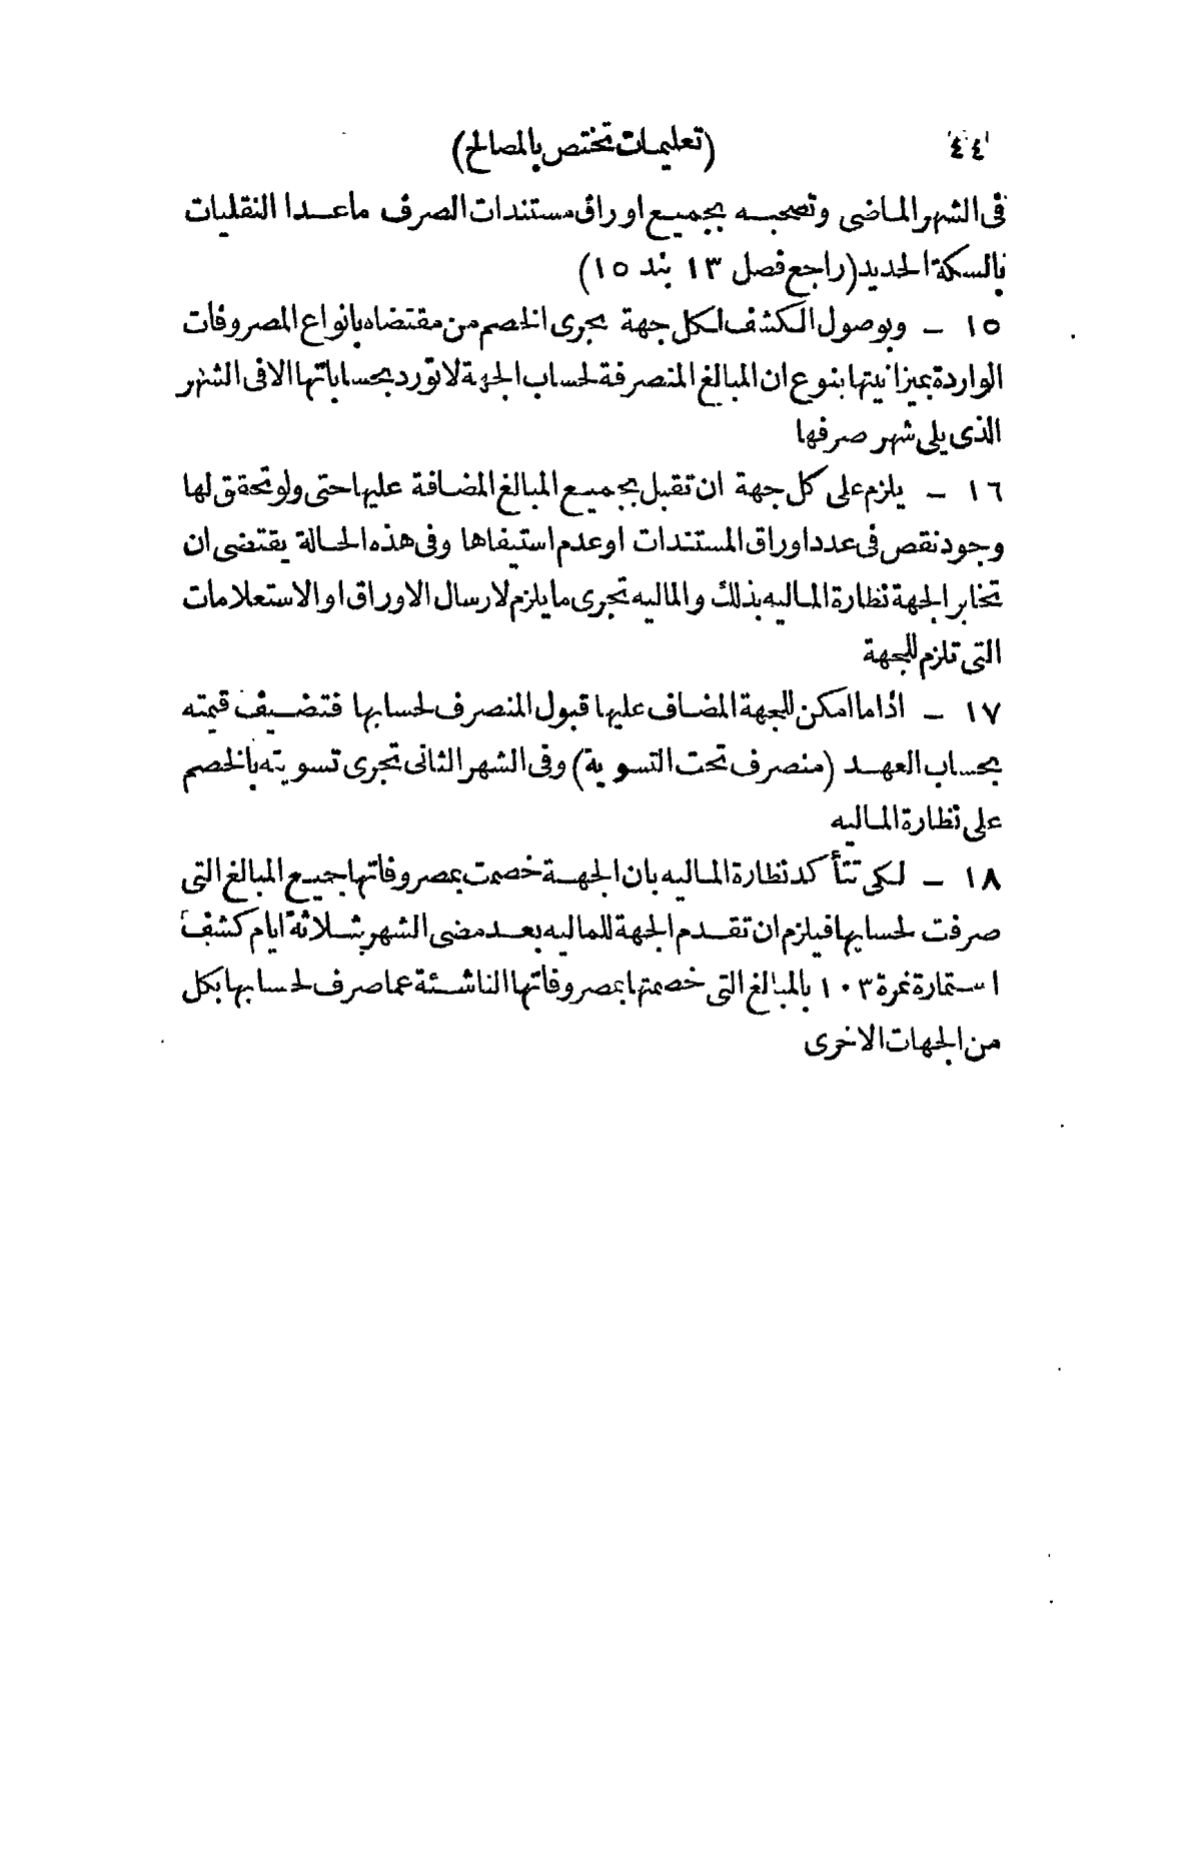 ٤٤ (تعليمات تختص بالمصالح)
فى الشهر الماضى وتصحبه بجميع اوراق مستندات الصرف ماعدا النقليات
بالسكة الحديد (راجع فصل ١٣ بند ١٥)
١٥ – وبوصول الكشف لكل جهة يجرى الخصم من مقتضاه بانواع المصروفات
الواردة بميزانيتها بنوع ان المبالغ المنصرفة لحساب الجهة لا تورد بحساباتها الا فى الشهر
الذى يلى شهر صرفها
١٦ – يلزم على كل جهة ان تقبل بجميع المبالغ المضافة عليها حتى ولو تحقق لها
وجود نقص فى عدد اوراق المستندات او عدم استيفاها وفى هذه الحالة يقتضى ان
تخابر الجهة نظارة الماليه بذلك والماليه تجرى ما يلزم لارسال الاوراق او الاستعلامات
التى تلزم للجهة
١٧ – اذا ما امكن للجهة المضاف عليها قبول المنصرف لحسابها فتضيف قيمته
بحساب العهد (منصرف تحت التسوية) وفى الشهر الثانى تجرى تسويته بالخصم
على نظارة الماليه
١٨ – لكى تتأكد نظارة الماليه بان الجهة خصمت بمصروفاتها جميع المبالغ التى
صرفت لحسابها فيلزم ان تقدم الجهة للماليه بعد مضى الشهر بثلاثة ايام كشف
استمارة نمرة ١٠٣ بالمبالغ التى خصمتها بمصروفاتها الناشئة عما صرف لحسابها بكل
من الجهات الاخرى